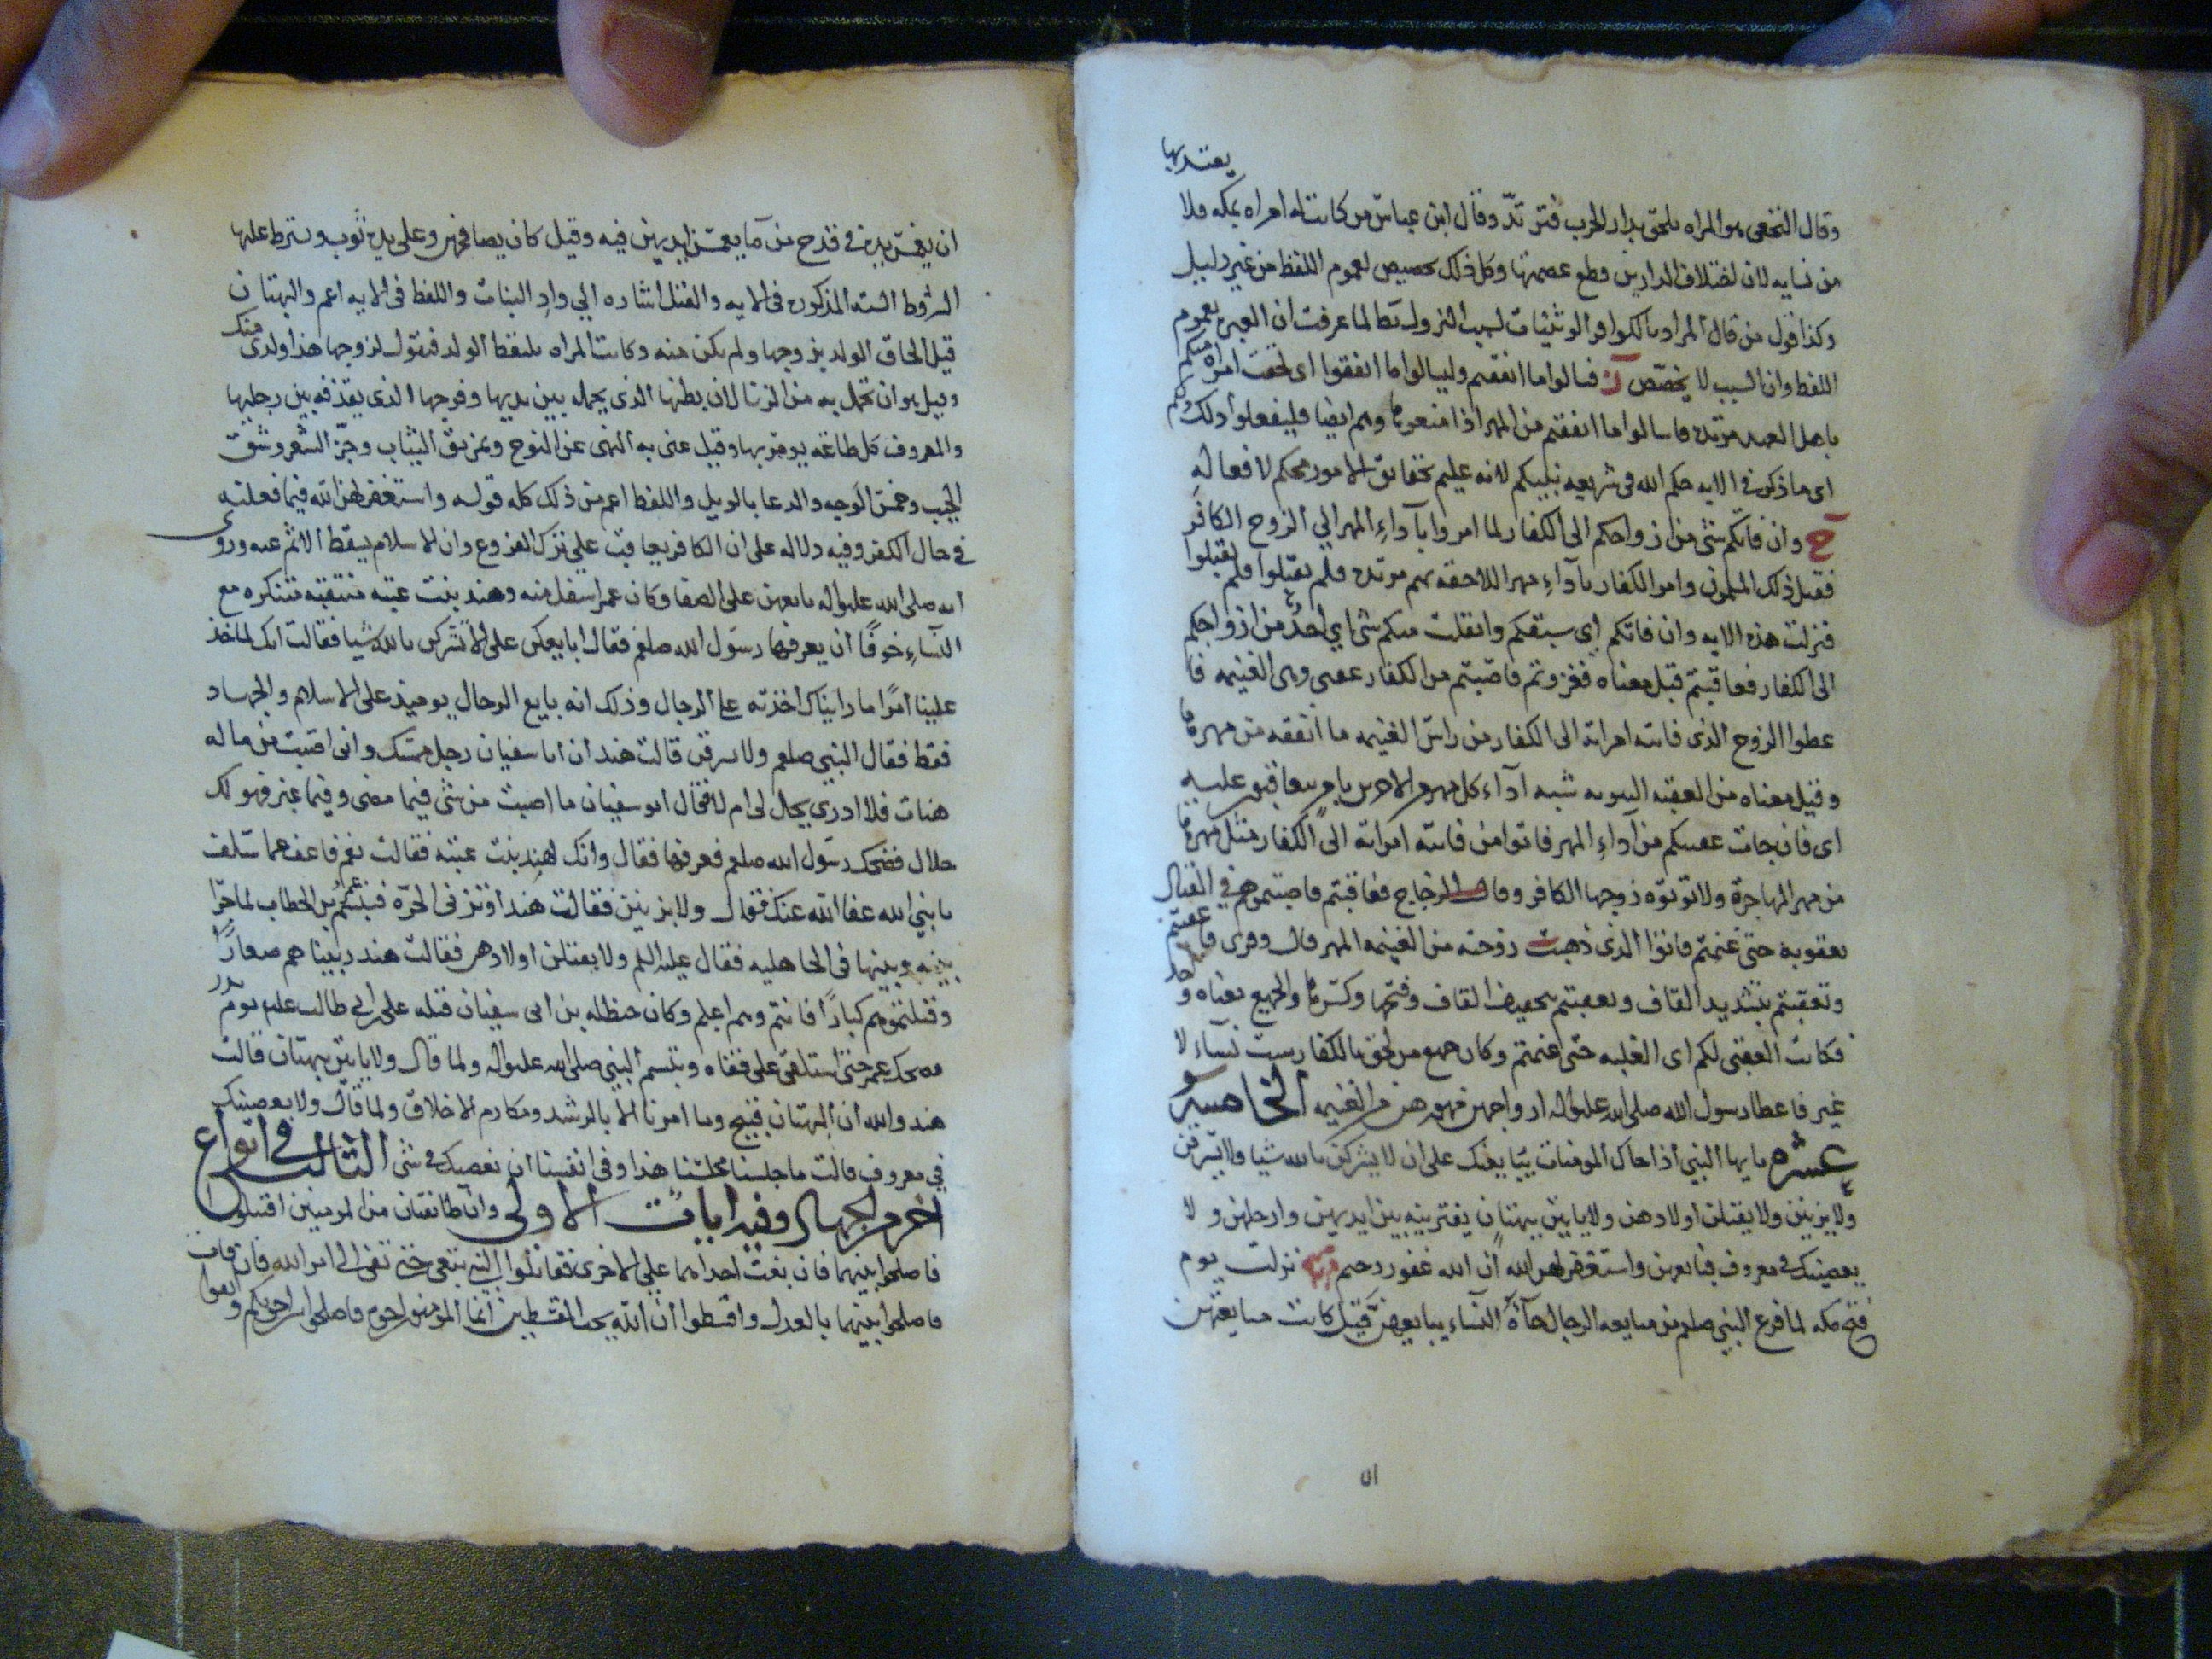 يعتد بها
وقال النخعي هو المراه تلحق بدار الحرب فترتدّ وقال ابن عباس من كانت له امراه بمكه فلا
من نسايه لان اختلاف الدارين قطع عصمتها وكل ذلك تخصيص لعموم اللفظ من غير دليل
وكذا قول من قال المراد بالكوافر الوثنيات لسبب النزول لما عرفت ان العبره بعموم
اللفظ وان السبب لا يخصّص فسالوا ما انفقتم وليسالوا ما انفقوا اى لحقت امراه منكم
باهل العهد مرتده فاسالوا ما انفقتم من المهر اذا منعوها وهم ايضا فليفعلوا ذلك
اى ما ذكر فى الايه حكم الله فى شريعه نبيكم لانه عليم بحقائق الامور محكم لافعاله
وان فاتكم شئ من ازواجكم الى الكفار لما امروا بآداء المهر الي الزوج الكافر
فقبل ذلك المسلمون وامر الكفار بآداء مهر اللاحقه بهم مرتده فلم يقبلوا
فنزلت هذه الايه وان فاتكم اي سبقكم وانفلت منكم شئ اي احدٌ من ازواجكم
الى الكفار فعاقبتم قيل معناه فغزوتم فاصبتم من الكفار عقبى وهى الغنيمه فا
عطوا الزوج الذى فاتته امراته الى الكفار من راس الغنيمه ما انفقه من مهرها
وقيل معناه من العقبه النوبه شبه آداء كل مهر الاخرين بامر يتعاقبون عليه
اى فان جات عقبتكم من آداء المهر فاتوا من فاتته امراته الى الكفار مثل مهرها
من مهر المهاجرة ولا توتوه زوجها الكافر وقال الزجاج فعاقبتم فاصبتموهم في القتال
بعقوبه حتى غنمتم فاتوا الذى ذهبت زوجته من الغنيمه المهر قال وقرى فاعقبتم
وتعقبتم بتشديد القاف وتعقبتم بتخفيف القاف وفتحها وكسرها والجميع معناه واحد
فكانت العقبى لكم اى الغلبه حتى غنمتم وكان جميع من لحق بالكفار ست نساء لا
غير فاعطا رسول الله صلى الله عليه واله ازواجهن مهورهن من الغنيمه الخامسه
عشره يايها النبي اذا جاك المومنات يبايعنك على ان لا يشركن بالله شيا ولا يسرقن
ولا يزنين ولا يقتلن اولادهن ولا ياتين ببهتان يفترينه بين ايديهن وارجلهن ولا
يعصينك فى معروف فبايعهن واستغفر لهن الله ان الله غفور رحيم نزلت يوم
فتح مكه لما فرغ النبي صلعم من مبايعه الرجال جآه النساء يبايعهن قيل كانت مبايعتهن
ان
ان يغمس يده فى قدح من مآ يغمسن ايديهن فيه وقيل كان يصافحهن وعلى يده ثوب ويشترط عليها
الشروط السته المذكوره فى الايه والقتل اشاره الي واد البنات واللفظ فى الايه اعم والبهتان
قيل الحاق الولد بزوجها ولم يكن منه وكانت المراه تلتقط الولد فتقول لزوجها هذا ولدى منك
وقيل هو ان تحمل به من الزنا لان بطنها الذى يحمله بين يديها وفرجها الذى يقذفه بين رجليها
والمعروف كل طاعه يومر بها وقيل عنى به النهى عن النوح وتمزيق الثياب وجزّ الشعر وشق
الجيب وخمش الوجه والدعا بالويل واللفظ اعم من ذلك كله قوله واستغفر لهن الله فيما فعلته
فى حال الكفر وفيه دلاله على ان الكافر يعاقب على ترك الفروع وان الاسلام يسقط الاثم عنه وروى
انه صلى الله عليه واله بايعهن على الصفا وكان عمر اسفل منه وهند بنت عتبه منتقبه متنكره مع
النساء خوفًا ان يعرفها رسول الله صلعم فقال ابايعكن على الا تشركن بالله شيا فقالت انك لتاخذ
علينا امرًا ما رايناك اخذته على الرجال وذلك انه بايع الرجال يوميذ على الاسلام والجهاد
فقط فقال النبي صلعم ولا تسرقن قالت هند ان ابا سفيان رجل ممسك وانى اصبت من ماله
هنات فلا ادرى يحل لى ام لا فقال ابو سفيان ما اصبت من شئ فيما مضى وفيما غبر فهو لك
حلال فضحك رسول الله صلعم فعرفها فقال وانك لهند بنت عتبه فقالت نعم فاعف عما سلف
يا نبي الله عفا الله عنك فقال ولا يزنين فقالت هند اوتزنى الحرّه فتبسم عمر بن الخطاب لما جرا
بينه وبينها فى الجاهليه فقال عليه السلم ولا يقتلن اولادهن فقالت هند ربيناهم صغارًا
وقتلتموهم كبارًا فانتم وهم اعلم وكان حنظله بن ابى سفيان قتله على بن ابي طالب عليه يوم بدر
فضحك عمر حتى استلقى على قفاه وتبسم النبي صلى الله عليه واله ولما قال ولا ياتين ببهتان قالت
هند والله ان البهتان قبيح وما امرنا الا بالرشد ومكارم الاخلاق ولما قال ولا يعصينك
في معروف قالت ما جلسنا مجلسنا هذا وفى انفسنا ان نعصيك فى شئ الثالث فى انواع
اخر من الجهاد وفيه ايات الاولى وان طائفتان من المومنين اقتتلوا
فاصلحوا بينهما فان بغت احداهما على الاخرى فقاتلوا التي تبغى حتى تفى الى امر الله فان فات
فاصلحوا بينهما بالعدل واقسطوا ان الله يحب المقسطين انما المومنون اخوه فاصلحوا بين اخويكم واتقوا